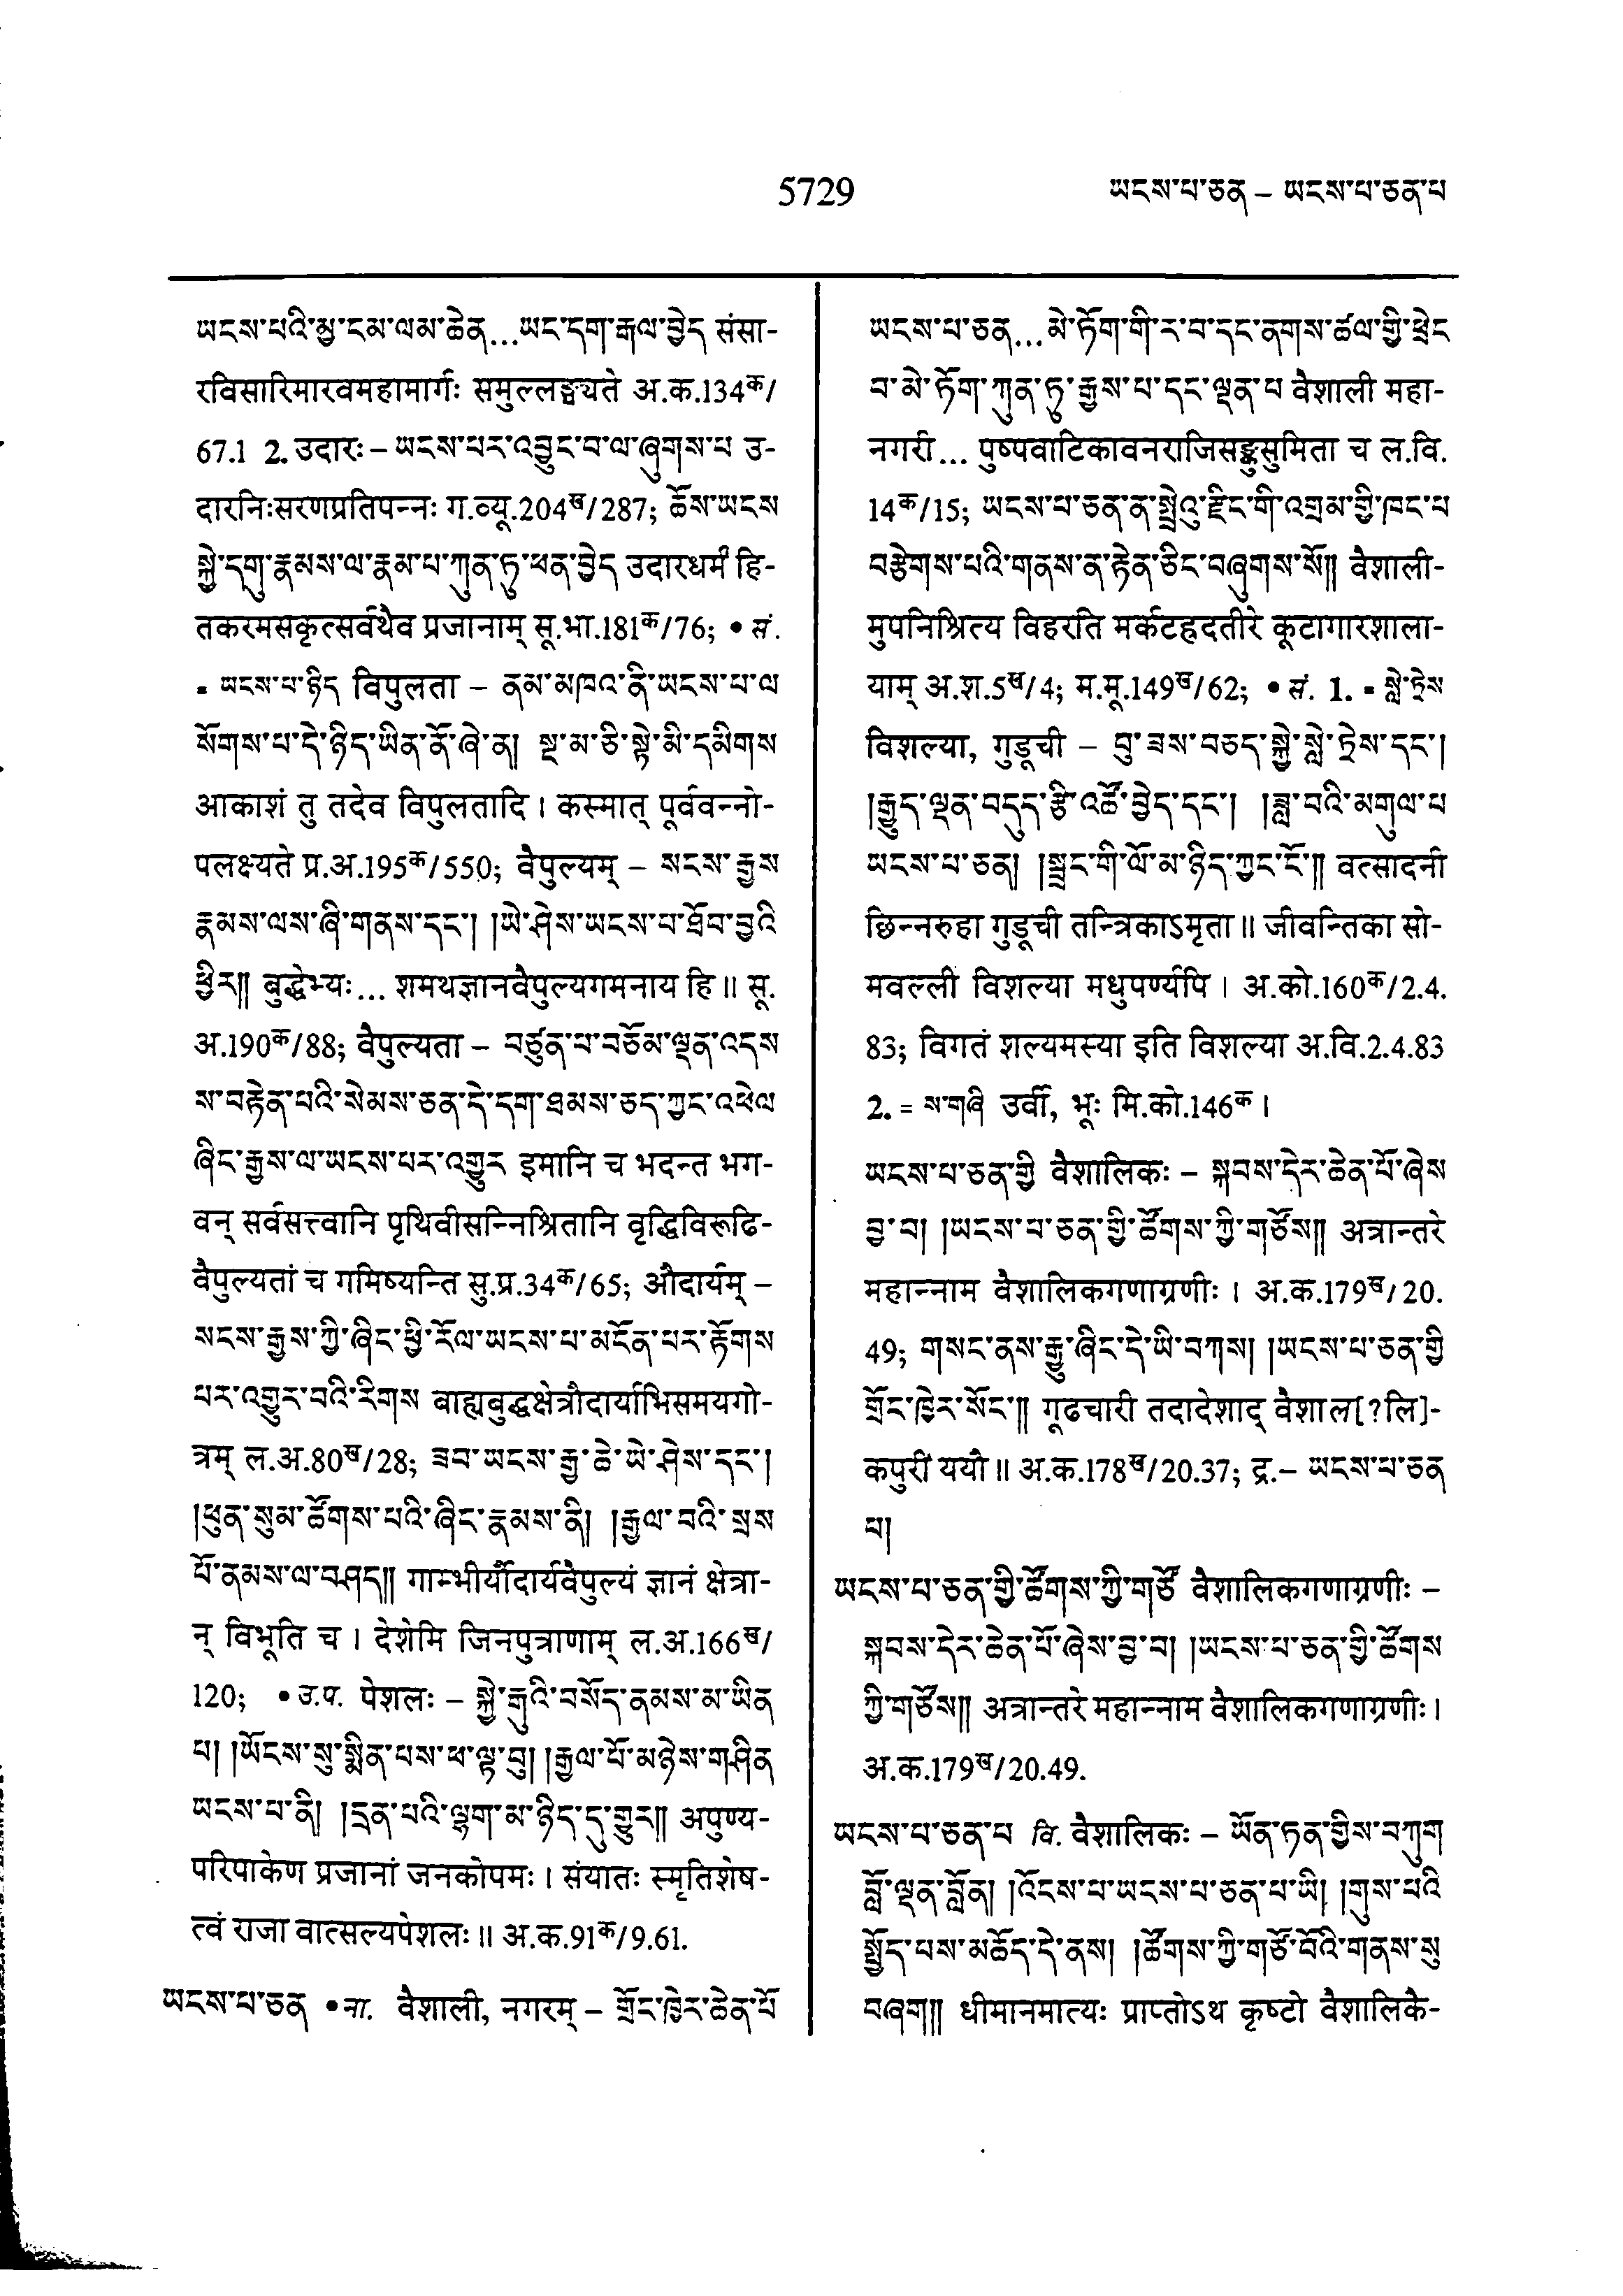 5729
ཡངས་པ་ཅན – ཡངས་པ་ཅན་པ
ཡངས་པའི་མྱ་ངམ་ལམ་ཆེན...ཡང་དག་རྒལ་བྱེད संसा-
रविसारिमारवमहामार्गः समुल्लङ्घ्यते अ.क.134क/
67.1 2. उदारः – ཡངས་པར་འབྱུང་བ་ལ་ཞུགས་པ उ-
दारनिःसरणप्रतिपन्नः ग.व्यू.204ख/287; ཆོས་ཡངས
སྐྱེ་དགུ་རྣམས་ལ་རྣམ་པ་ཀུན་ཏུ་ཕན་བྱེད उदारधर्मं हि-
तकरमसकृत्सर्वथैव प्रजानाम् सू.भा.181क/76; • सं.
= ཡངས་པ་ཉིད विपुलता – ནམ་མཁའ་ནི་ཡངས་པ་ལ
སོགས་པ་དེ་ཉིད་ཡིན་ནོ་ཞེ་ན། སྔ་མ་ཅི་སྟེ་མི་དམིགས
आकाशं तु तदेव विपुलतादि । कस्मात् पूर्ववन्नो-
पलक्ष्यते प्र.अ.195क/550; वैपुल्यम् – སངས་རྒྱས
རྣམས་ལས་ཞི་གནས་དང་། །ཡེ་ཤེས་ཡངས་པ་ཐོབ་བྱའི
ཕྱིར།། बुद्धेभ्यः... शमथज्ञानवैपुल्यगमनाय हि ॥ सू.
अ.190क/88; वैपुल्यता – བཙུན་པ་བཅོམ་ལྡན་འདས
ས་བརྟེན་པའི་སེམས་ཅན་དེ་དག་ཐམས་ཅད་ཀྱང་འཕེལ
ཞིང་རྒྱས་ལ་ཡངས་པར་འགྱུར इमानि च भदन्त भग-
वन् सर्वसत्त्वानि पृथिवीसन्निश्रितानि वृद्धिविरूढि-
वैपुल्यतां च गमिष्यन्ति सु.प्र.34क/65; औदार्यम् –
སངས་རྒྱས་ཀྱི་ཞིང་ཕྱི་རོལ་ཡངས་པ་མངོན་པར་རྟོགས
པར་འགྱུར་བའི་རིགས बाह्यबुद्धक्षेत्रौदार्याभिसमयगो-
त्रम् ल.अ.80ख/28; ཟབ་ཡངས་རྒྱ་ཆེ་ཡེ་ཤེས་དང་།
།ཕུན་སུམ་ཚོགས་པའི་ཞིང་རྣམས་ནི། །རྒྱལ་བའི་སྲས
པོ་ནམས་ལ་བཤད།། गाम्भीर्यौदार्यवैपुल्यं ज्ञानं क्षेत्रा-
न् विभूति च । देशेमि जिनपुत्राणाम् ल.अ.166ख/
120; • उ.प. पेशलः – སྐྱེ་རྒུའི་བསོད་ནམས་མ་ཡིན
པ། །ཡོངས་སུ་སྨིན་པས་ཕ་ལྟ་བུ། །རྒྱལ་པོ་མཉེས་གཤིན
ཡངས་པ་ནི། །དྲན་པའི་ལྷག་མ་ཉིད་དུ་གྱུར།། अपुण्य-
परिपाकेण प्रजानां जनकोपमः । संयातः स्मृतिशेष-
त्वं राजा वात्सल्यपेशलः ॥ अ.क.91क/9.61.
ཡངས་པ་ཅན • ना. वैशाली, नगरम् – གྲོང་ཁྱེར་ཆེན་པོ
ཡངས་པ་ཅན...མེ་ཏོག་གི་ར་བ་དང་ནགས་ཚལ་གྱི་ཕྲེང
བ་མེ་ཏོག་ཀུན་ཏུ་རྒྱས་པ་དང་ལྡན་པ वैशाली महा-
नगरी... पुष्पवाटिकावनराजिसङ्कुसुमिता च ल.वि.
14क/15; ཡངས་པ་ཅན་ན་སྤྲེའུ་རྫིང་གི་འགྲམ་གྱི་ཁང་པ
བརྩེགས་པའི་གནས་ན་རྟེན་ཅིང་བཞུགས་སོ།། वैशाली-
मुपनिश्रित्य विहरति मर्कटह्रदतीरे कूटागारशाला-
याम् अ.श.5ख/4; म.मू.149ख/62; • सं. 1. = སླེ་ཏྲེས
विशल्या, गुडूची – བུ་ཟས་བཅད་སྐྱེ་སླེ་ཏྲེས་དང་།
།རྒྱུད་ལྡན་བདུད་རྩི་འཚོ་བྱེད་དང་། །ཟླ་བའི་མགུལ་པ
ཡངས་པ་ཅན། །སྦྲང་གི་ལོ་མ་ཉིད་ཀྱང་ངོ་།། वत्सादनी
छिन्नरुहा गुडूची तन्त्रिकाऽमृता ॥ जीवन्तिका सो-
मवल्ली विशल्या मधुपर्ण्यपि । अ.को.160क/2.4.
83; विगतं शल्यमस्या इति विशल्या अ.वि.2.4.83
2. = ས་གཞི उर्वी, भूः मि.को.146क ।
ཡངས་པ་ཅན་གྱི वैशालिकः – སྐབས་དེར་ཆེན་པོ་ཞེས
བྱ་བ། །ཡངས་པ་ཅན་གྱི་ཚོགས་ཀྱི་གཙོས།། अत्रान्तरे
महान्नाम वैशालिकगणाग्रणीः । अ.क.179ख/20.
49; གསང་ནས་རྒྱུ་ཞིང་དེ་ཡི་བཀས། །ཡངས་པ་ཅན་གྱི
གྲོང་ཁྱེར་སོང་།། गूढचारी तदादेशाद् वैशाल[?लि]-
कपुरीं ययौ ॥ अ.क.178ख/20.37; द्र.– ཡངས་པ་ཅན
པ།
ཡངས་པ་ཅན་གྱི་ཚོགས་ཀྱི་གཙོ वैशालिकगणाग्रणीः –
སྐབས་དེར་ཆེན་པོ་ཞེས་བྱ་བ། །ཡངས་པ་ཅན་གྱི་ཚོགས
ཀྱི་གཙོས།། अत्रान्तरे महान्नाम वैशालिकगणाग्रणीः ।
अ.क.179ख/20.49.
ཡངས་པ་ཅན་པ वि. वैशालिकः – ཡོན་ཏན་གྱིས་བཀུག
བློ་ལྡན་བློན། །འོངས་པ་ཡངས་པ་ཅན་པ་ཡི། །གུས་པའི
སྤྱོད་པས་མཆོད་དེ་ནས། །ཚོགས་ཀྱི་གཙོ་བོའི་གནས་སུ
བཞག།། धीमानमात्यः प्राप्तोऽथ कृष्टो वैशालिकै-